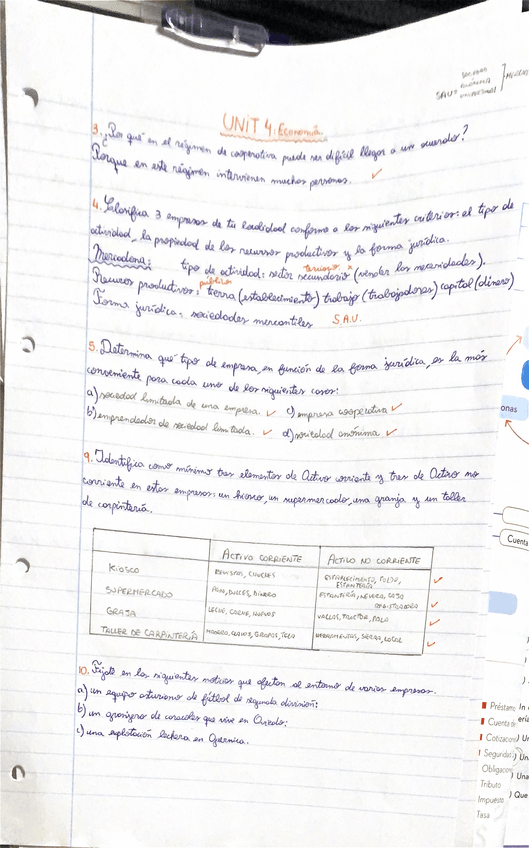 SOCIEDAD
SAU
UNIPERSONAL
UNIT 4: Economía.
3. ¿Por qué en el régimen de cooperativa puede ser difícil llegar a un acuerdo?
Porque en este régimen intervienen muchas personas. ✓
4. Clasifica 3 empresas de tu localidad conforme a los siguientes criterios: el tipo de
actividad, la propiedad de los recursos productivos y la forma jurídica.
terciario x
Mercadona: tipo de actividad: sector secundario (vender las necesidades).
pública
Recursos productivos: tierra (establecimiento) trabajo (trabajadores) capital (dinero)
Forma jurídica: sociedades mercantiles S.A.U.
5. Determina qué tipo de empresa, en función de la forma jurídica, es la más
conveniente para cada uno de los siguientes casos:
a) sociedad limitada de una empresa. ✓ c) empresa cooperativa ✓
b) emprendedor de sociedad limitada. ✓ d) sociedad anónima ✓
9. Identifica como mínimo tres elementos de Activo corriente y tres de Activo no
corriente en estas empresas: un kiosco, un supermercado, una granja y un taller
de carpintería.
ACTIVO CORRIENTE ACTIVO NO CORRIENTE
KIOSCO REVISTAS, CHICLES ESTABLECIMIENTO, TOLDO,
ESTANTERÍA ✓
SUPERMERCADO PAN, DULCES, DINERO ESTANTERÍA, NEVERA, CAJA
REGISTRADORA ✓
GRAJA LECHE, CARNE, HUEVOS VALLAS, TRACTOR, PALA ✓
TALLER DE CARPINTERÍA MADERA, CLAVOS, GRAPAS, TELA HERRAMIENTAS, SIERRA, LOCAL ✓
10. Fíjate en las siguientes noticias que afectan al entorno de varias empresas.
a) un equipo asturiano de fútbol de segunda división:
b) un granjero de caracoles que vive en Oviedo:
c) una explotación lechera en Guernica.
onas
Cuenta
Préstamo
Cuenta de
Cotizacion
Seguridad
Obligacion
Tributo
Impuesto
Tasa
In
) Un
) Un
) Una
) Que